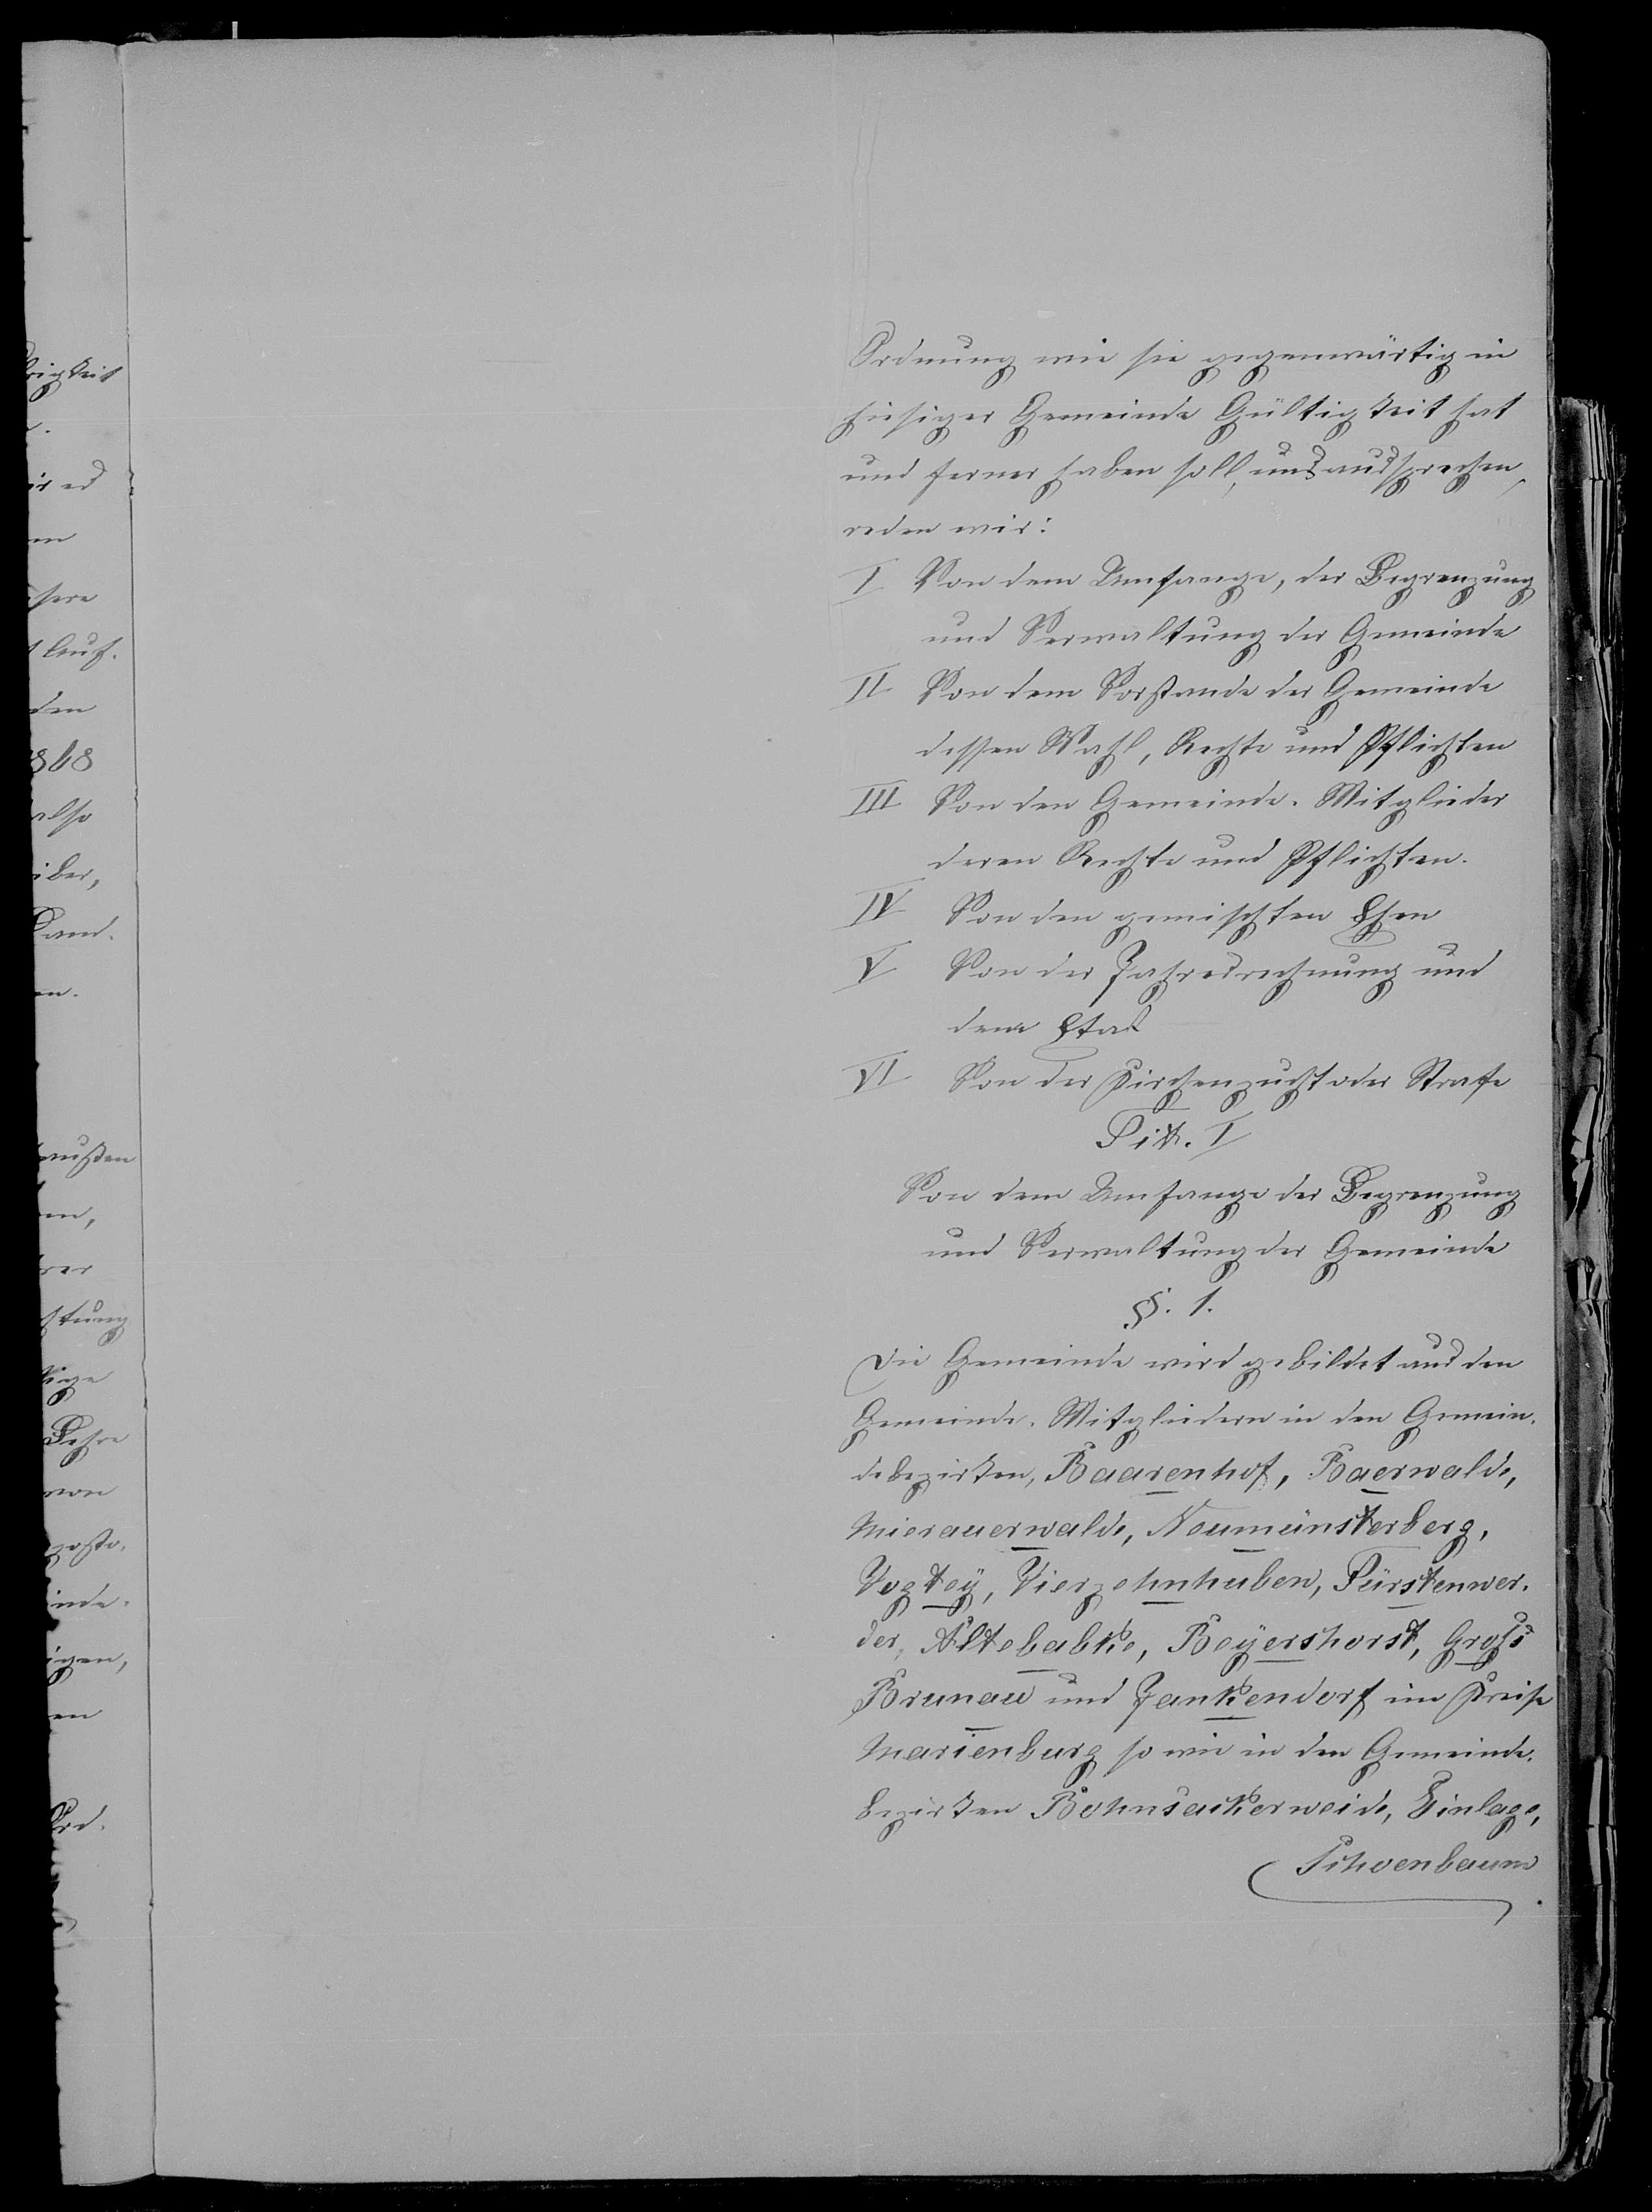 rigkeit
ir es
en
sere
Auf.
den
868
also
iber,
Land.
en.
eußen
en,
rer
stung
Lehre
von
inde-
igen,
en
Ord.
Ordnung wie sie gegenwärtig in
hiesiger Gemeinde Gültigkeit hat
und ferner haben soll, uns aussprechen,
reden wir:
I Von dem Umfange, der Begrenzung
und Verwaltung der Gemeinde
II Von dem Vorstande der Gemeinde
dessen Wahl, Rechte und Pflichten
III Von den Gemeinde-Mitglieder
deren Rechte und Pflichten.
IV Von den gemischten Ehen
V Von der Jahresrechnung und
dem Etat
VI Von der Kirchenzucht oder Strafe
Tit. I
Von dem Umfange der Begrenzung
und Verwaltung der Gemeinde
§. 1.
Die Gemeinde wird gebildet aus den
Gemeinde-Mitgliedern in den Gemein-
debezirken, Baarenhof, Baerwalde,
Mierauerwalde, Neumünsterberg,
Vogteÿ, Vierzehnhuben, Fürstenwer-
der, Altebabke, Beÿershorst, Groß
Brunau und Jankendorf im Kreise
Marienburg so wie in den Gemeinde-
bezirken Bohnsackerweide, Einlage,
Schoenbaum